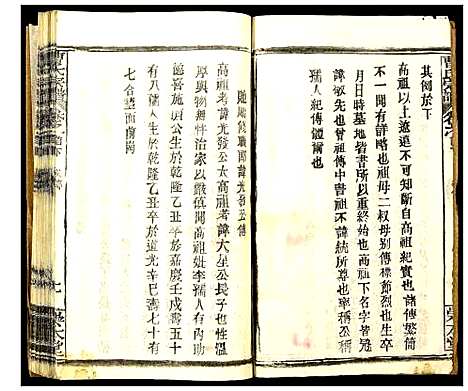 其例於下
高祖以上遼遠不可知斷自高祖紀實也諸傳繁簡
不一因有詳略也祖母二叔母別傳標節烈也生卒
月日時墓地皆書所以重終始也高祖下名字皆冠
諱敏先也曾祖傳中昔祖不諱統所尊也率稱公稱
孺人紀傳體也
高祖考諱光發公太高祖考諱大星公長子也性溫
厚與物無忤治家以嚴慎聞高祖妣李孺人有淑德
餘喜施濟公生於乾隆乙丑卒於嘉慶壬戌壽五十
有八孺人生於乾隆乙丑卒於道光辛巳壽七十有
七合墓面前崗